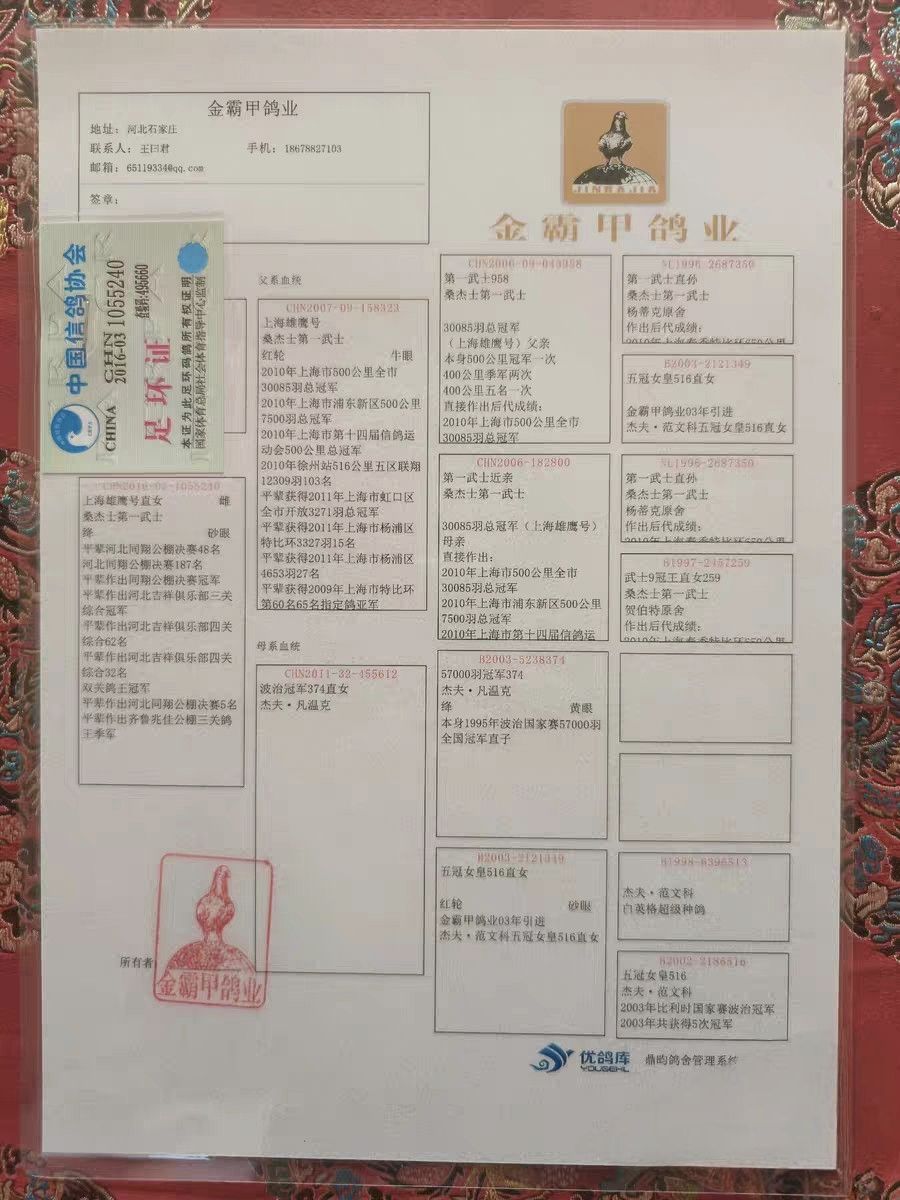 金霸甲鸽业
地址：河北石家庄
联系人：王曰君 手机：18678827103
邮箱：65119334@qq.com
签章：
JINBAJIA
金霸甲鸽业
中国信鸽协会
CHINA CHN
2016-03 1055240
查询码:495660
足环证
本证为此足环码鸽所有权证明
国家体育总局社会体育指导中心监制
CHN2016-03-1055240
上海雄鹰号直女 雌
桑杰士第一武士
绛 砂眼
平辈河北同翔公棚决赛48名
河北同翔公棚决赛187名
平辈作出同翔公棚决赛冠军
平辈作出河北吉祥俱乐部三关
综合冠军
平辈作出河北吉祥俱乐部四关
综合62名
平辈作出河北吉祥俱乐部四关
综合32名
双关鸽王冠军
平辈作出河北同翔公棚决赛5名
平辈作出齐鲁兆佳公棚三关鸽
王季军
所有者
金霸甲鸽业
父系血统
CHN2007-09-158323
上海雄鹰号
桑杰士第一武士
红轮 牛眼
2010年上海市500公里全市
30085羽总冠军
2010年上海市浦东新区500公里
7500羽总冠军
2010年上海市第十四届信鸽运
动会500公里总冠军
2010年徐州站516公里五区联翔
12309羽103名
平辈获得2011年上海市虹口区
全市开放3271羽总冠军
平辈获得2011年上海市杨浦区
特比环3327羽15名
平辈获得2011年上海市杨浦区
4653羽27名
平辈获得2009年上海市特比环
第60名65名指定鸽亚军
母系血统
CHN2011-32-455612
波治冠军374直女
杰夫·凡温克
CHN2006-09-043958
第一武士958
桑杰士第一武士
30085羽总冠军
（上海雄鹰号）父亲
本身500公里冠军一次
400公里季军两次
400公里五名一次
直接作出后代成绩：
2010年上海市500公里全市
30085羽总冠军
CHN2006-182800
第一武士近亲
桑杰士第一武士
30085羽总冠军（上海雄鹰号）
母亲
直接作出：
2010年上海市500公里全市
30085羽总冠军
2010年上海市浦东新区500公里
7500羽总冠军
2010年上海市第十四届信鸽运
B2003-5238374
57000羽冠军374
杰夫·凡温克
绛 黄眼
本身1995年波治国家赛57000羽
全国冠军直子
B2003-2121349
五冠女皇516直女
红轮 砂眼
金霸甲鸽业03年引进
杰夫·范文科五冠女皇516直女
NL1996-2687350
第一武士直孙
桑杰士第一武士
杨蒂克原舍
作出后代成绩：
2010年上海春季特比环650公里
B2003-2121349
五冠女皇516直女
金霸甲鸽业03年引进
杰夫·范文科五冠女皇516直女
NL1996-2687350
第一武士直孙
桑杰士第一武士
杨蒂克原舍
作出后代成绩：
2010年上海春季特比环650公里
B1997-2457259
武士9冠王直女259
桑杰士第一武士
贺伯特原舍
作出后代成绩：
2010年上海春季特比环650公里
B1998-6396513
杰夫·范文科
白英格超级种鸽
B2002-2186516
五冠女皇516
杰夫·范文科
2003年比利时国家赛波治冠军
2003年共获得5次冠军
优鸽库
YOUGEKU
鼎昀鸽舍管理系统